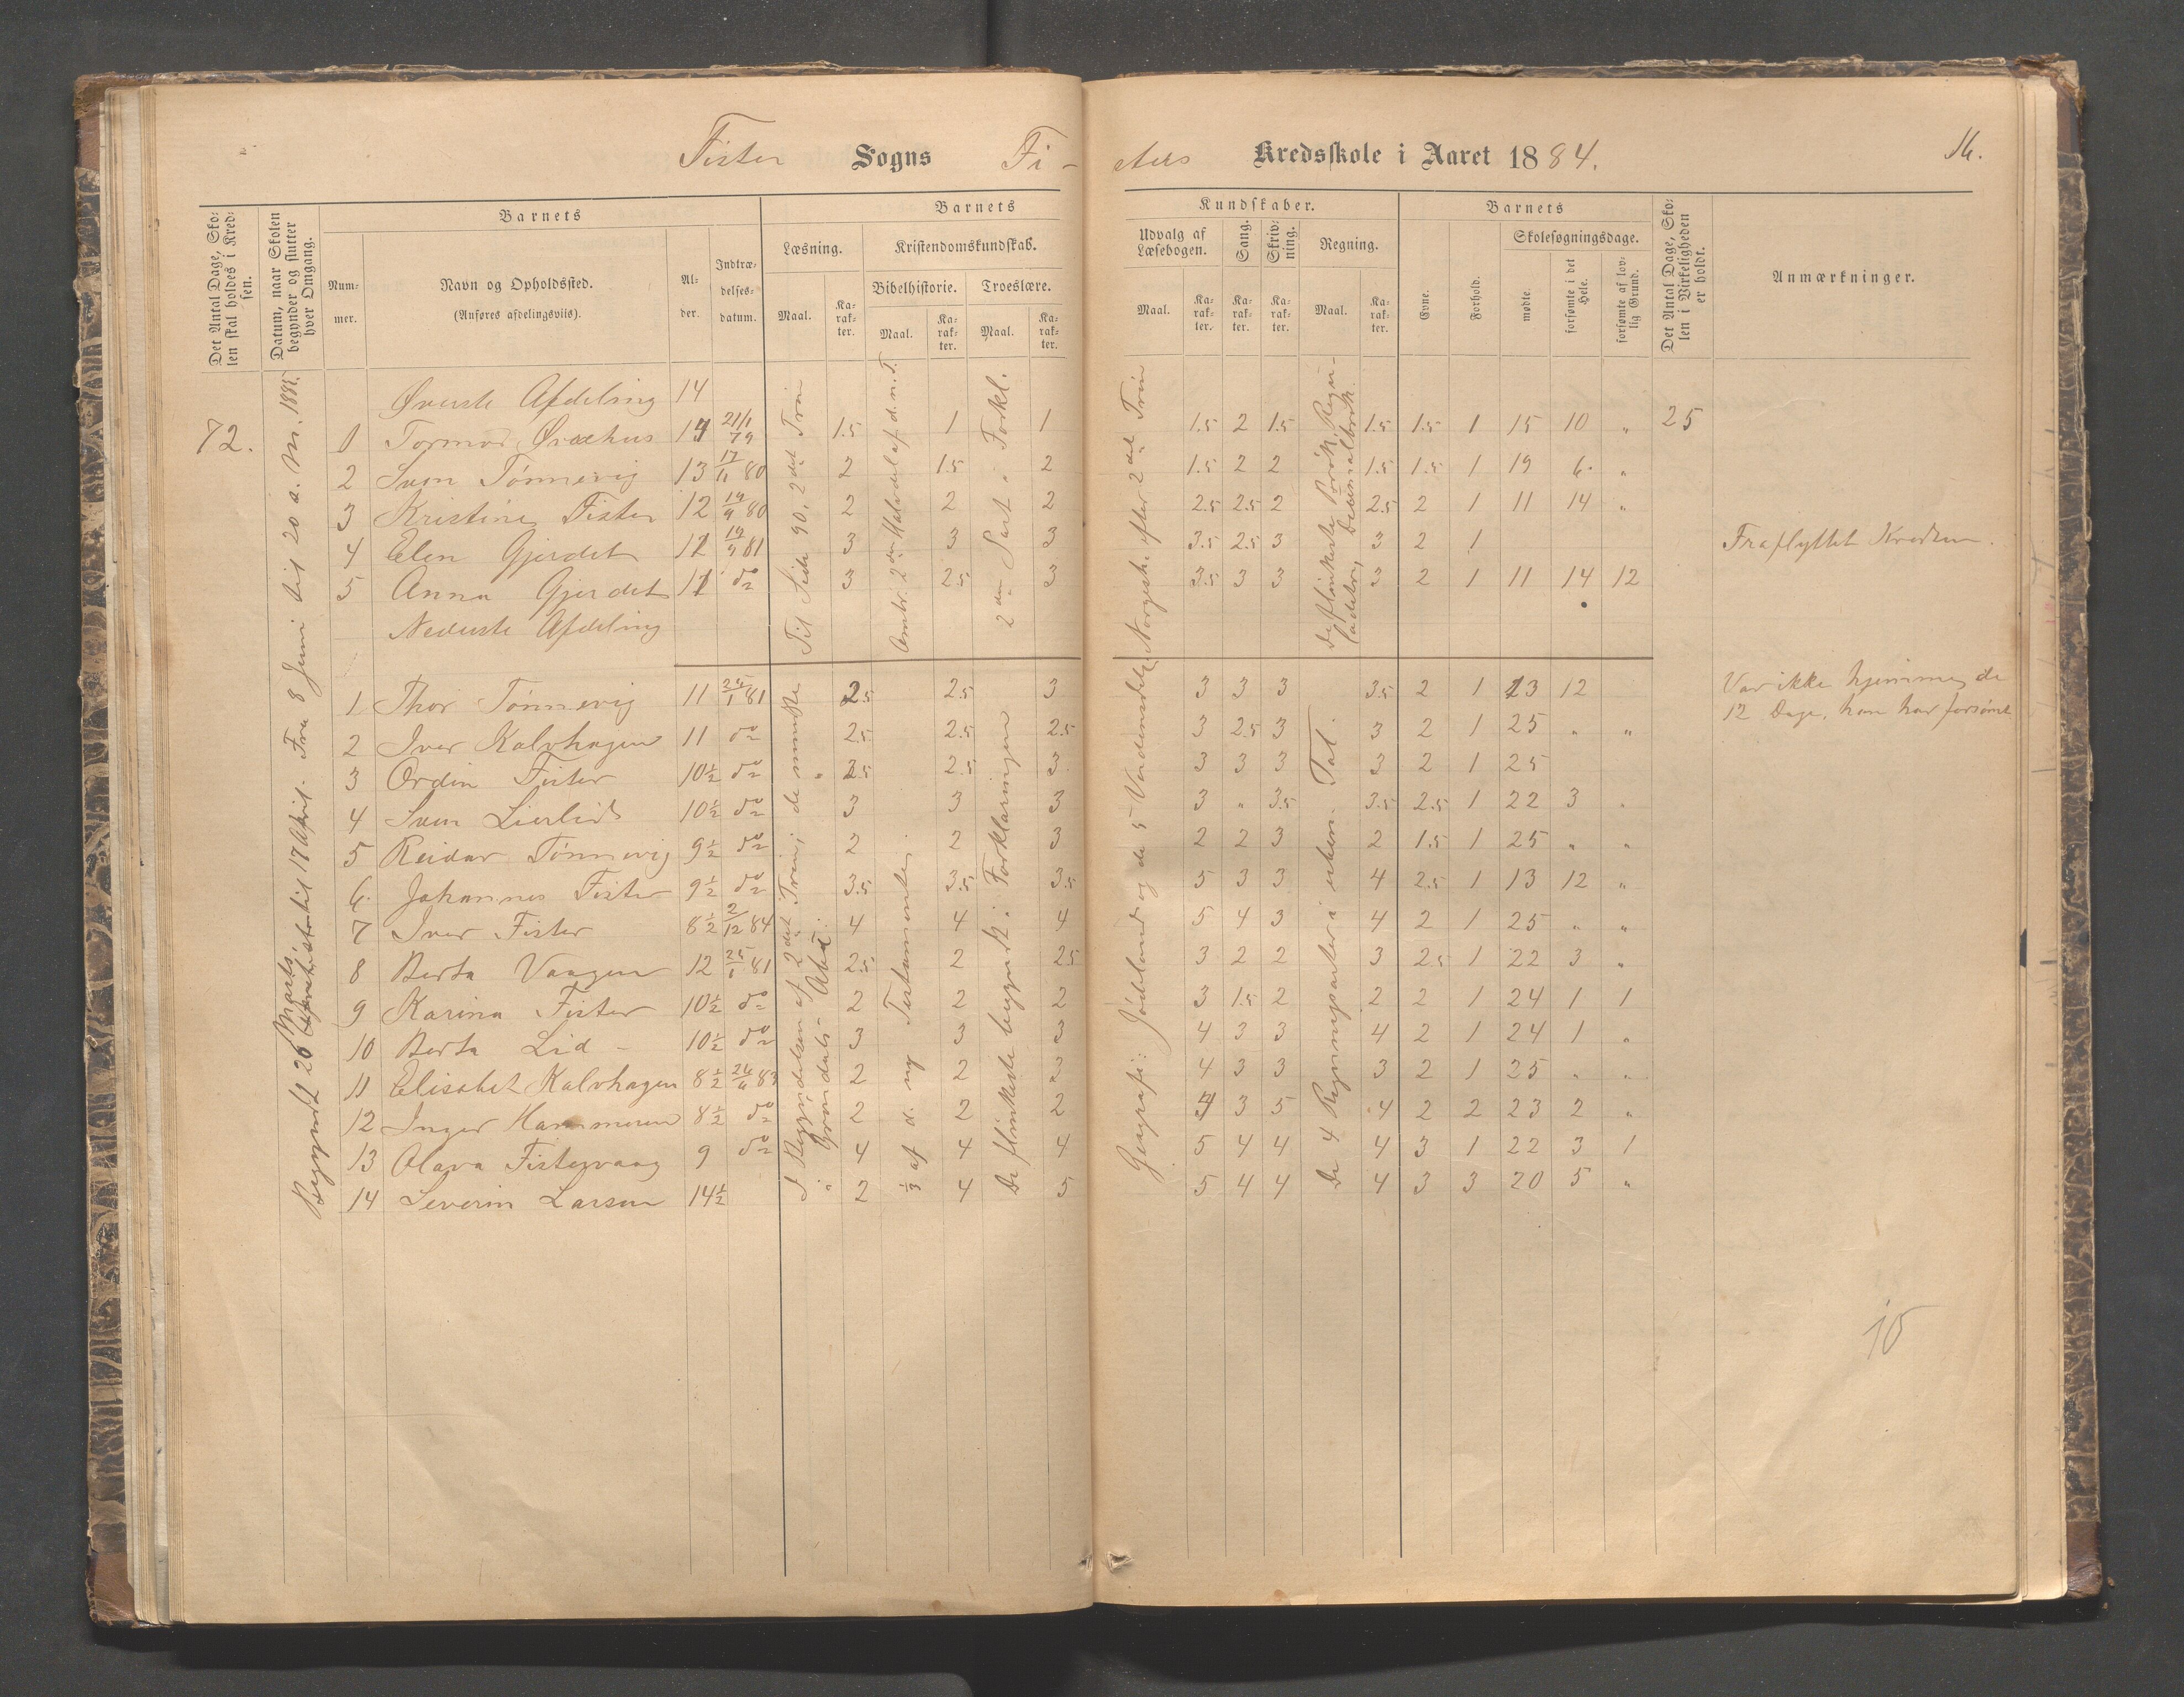 Fister Sogns Fi-
sters Kredsskole i Aaret 1884.
16.
Det Antal Dage, Skolen skal holdes i Kredsen.
Datum, naar Skolen begynder og slutter hver Omgang.
Barnets
Nummer.
Navn og Opholdssted.
(Anføres afdelingsvils).
Alder.
Indtrædelsesdatum.
Barnets
Læsning.
Maal.
Karakter.
Kristendomskundskab.
Bibelhistorie.
Maal.
Karakter.
Troeslære.
Maal.
Karakter.
Kundskaber.
Udvalg af Læsebogen.
Maal.
Karakter.
Sang.
Karakter.
Skrivning.
Karakter.
Regning.
Maal.
Karakter.
Barnets
Evne.
Forhold.
Skolesøgningsdage.
mødte.
forsømte i det Hele.
forsømte af lovlig Grund.
Det Antal Dage, Skolen i Virkeligheden er holdt.
Anmærkninger.
72.
Begyndt 26 Marts til 17 April. Fra 8 Juni til 20 a. M. 1885.
Øverste Afdeling 14
Tormod 21/1 79 1.5 1 1 1.5 2 1.5 1.5 1.5 1 15 10 " 25
2 Sven Tønnevig 13 80 2 1.5 2 1.5 2 2 1.5 1.5 1 19 6 "
3 Kristine Fister 12 19/9 80 2 2 2 2.5 2.5 2 2.5 2 1 11 14 "
4 Elen Gjerdet 19/9 81 3 3 3 3.5 2.5 3 3 2 1 Fraflyttet Kredsen.
5 Anna Gjerdet do 3 2.5 3 3.5 3 3 3 2 1 11 14 12
Nederste Afdeling
Til Side 90, 2det Trin
2den Halvdel af d. n. T.
2den Part i Forkl.
Norgesh. efter 2det Trin
de flinkeste
1 Thor Tønnevig 11 81 2.5 2.5 3 3 3 3 3.5 2 1 13 12 Var ikke hjemme de
12 Dage, han har forsømt
2 Iver Kalvhagen 11 do 2.5 2.5 2.5 3 2.5 3 3 2 1 25 " "
3 Ordin Fister 10½ do 2.5 2.5 3 3 3 3 3 2 1 25
4 Sven Lierlid 10½ do 3 3 3 3 " 3.5 3.5 2.5 1 22 3 "
5 Reidar Tønnevig 9½ do 2 2 3 2 2 3 2 1.5 1 25 " "
6. Johannes Fister 9½ do 3.5 3.5 3.5 5 3 3 4 2.5 1 13 12 "
7 Iver Fister 8½ 2/12 84 4 4 4 5 4 3 4 2 1 25 " "
8 Berta Vaagen 12 81 2.5 2 2.5 3 2 2 3 2.5 1 22 3 "
9 Karina Fister 10½ do 2 2 2 3 1.5 2 2 2 1 24 1 1
10 Berta Lid 10½ do 3 3 3 4 3 3 4 2 1 24 1 "
11 Elisabet Kalvhagen 8½ 83 2 2 2 4 3 3 3 2 1 25 " "
12 Inger Hammeren 8½ do 2 2 2 4 3 5 4 2 2 23 2 "
13 Olava Fistervaag 9 do 4 4 4 5 4 4 4 3 1 22 3 1
14 Severin Larsen 14½ 2 4 5 5 4 4 4 3 3 20 5 "
I Begyndelsen af 2det Trin; de mindste
⅓ af d. ny Testamente.
De flinkeste begyndt i Forklaringen
Geografi: Jødeland og de 5 Verdensdele
De 4 Regningsarter i enkon. Tal.
10